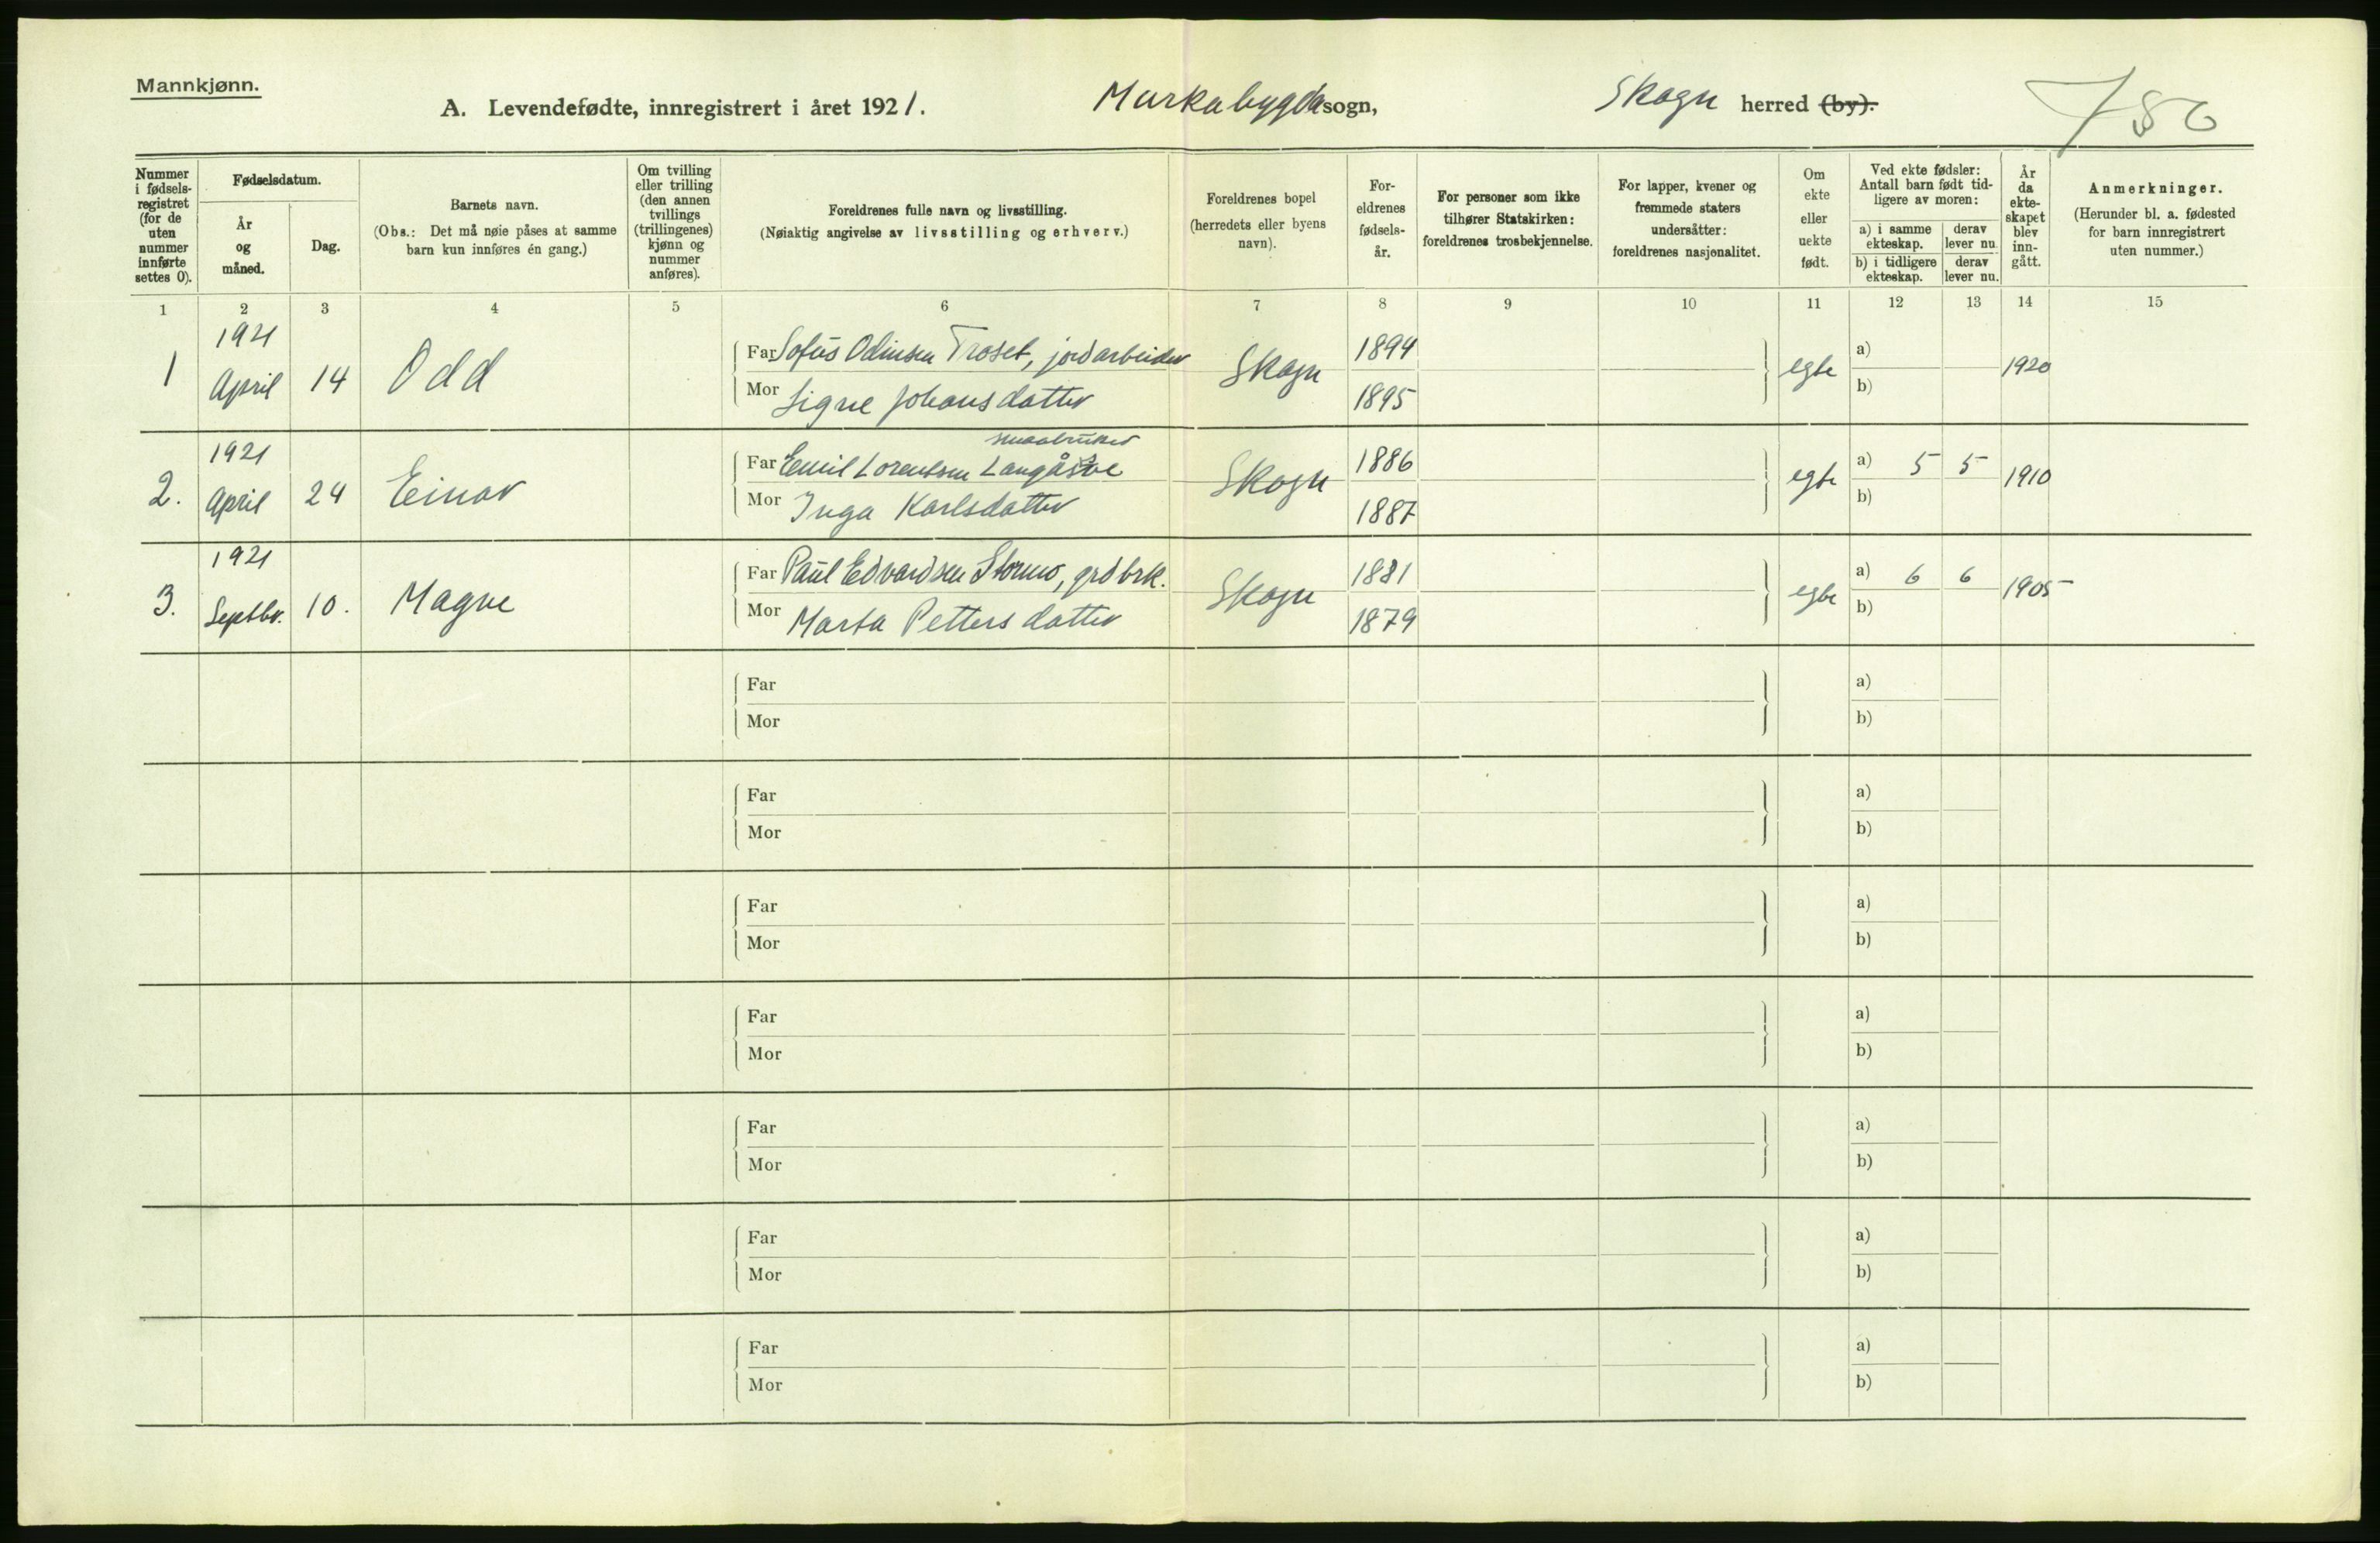 Mannkjønn.
A. Levendefødte, innregistrert i året 1921. Markabygda sogn, Skogn herred (by). 
Nummer i fødsels-registret (for de uten nummer innførte settes 0).
Fødselsdatum.
År og måned.
Dag.
Barnets navn.
(Obs.: Det må nøie påses at samme barn kun innføres én gang.)
Om tvilling eller trilling (den annen tvillings (trillingenes) kjønn og nummer anføres).
Foreldrenes fulle navn og livsstilling.
(Nøiaktig angivelse av livsstilling og erhverv.)
Foreldrenes bopel
(herredets eller byens navn).
For-eldrenes fødsels-år.
For personer som ikke tilhører Statskirken: foreldrenes trosbekjennelse.
For lapper, kvener og fremmede staters undersåtter: foreldrenes nasjonalitet.
Om ekte eller uekte født.
Ved ekte fødsler: Antall barn født tid-ligere av moren:
a) i samme ekteskap.
derav lever nu.
b) i tidligere ekteskap.
derav lever nu.
År da ekte-skapet blev inn-gått.
Anmerkninger.
(Herunder bl. a. fødested for barn innregistrert uten nummer.)
1 2 3 4 5 6 7 8 9 10 11 12 13 14 15
1 1921 April 14 Odd Far Sofus Odinsen Troset, jordarbeider Skogn 1894 egte a) 1920
Mor Signe Johansdatter 1895 b)
smaabruker
2. 1921 April 24 Einar Far Emil Lorentsen Langåsve Skogn 1886 egte a) 5 5 1910
Mor Inga Karlsdatter 1887 b)
3. 1921 Septbr. 10. Magne Far Paul Edvardsen Stormo, grdbrk. Skogn 1881 egte a) 6 6 1905
Mor Marta Pettersdatter 1879 b)
Far a)
Mor b)
Far a)
Mor b)
Far a)
Mor b)
Far a)
Mor b)
Far a)
Mor b)
Far a)
Mor b)
Far a)
Mor b)